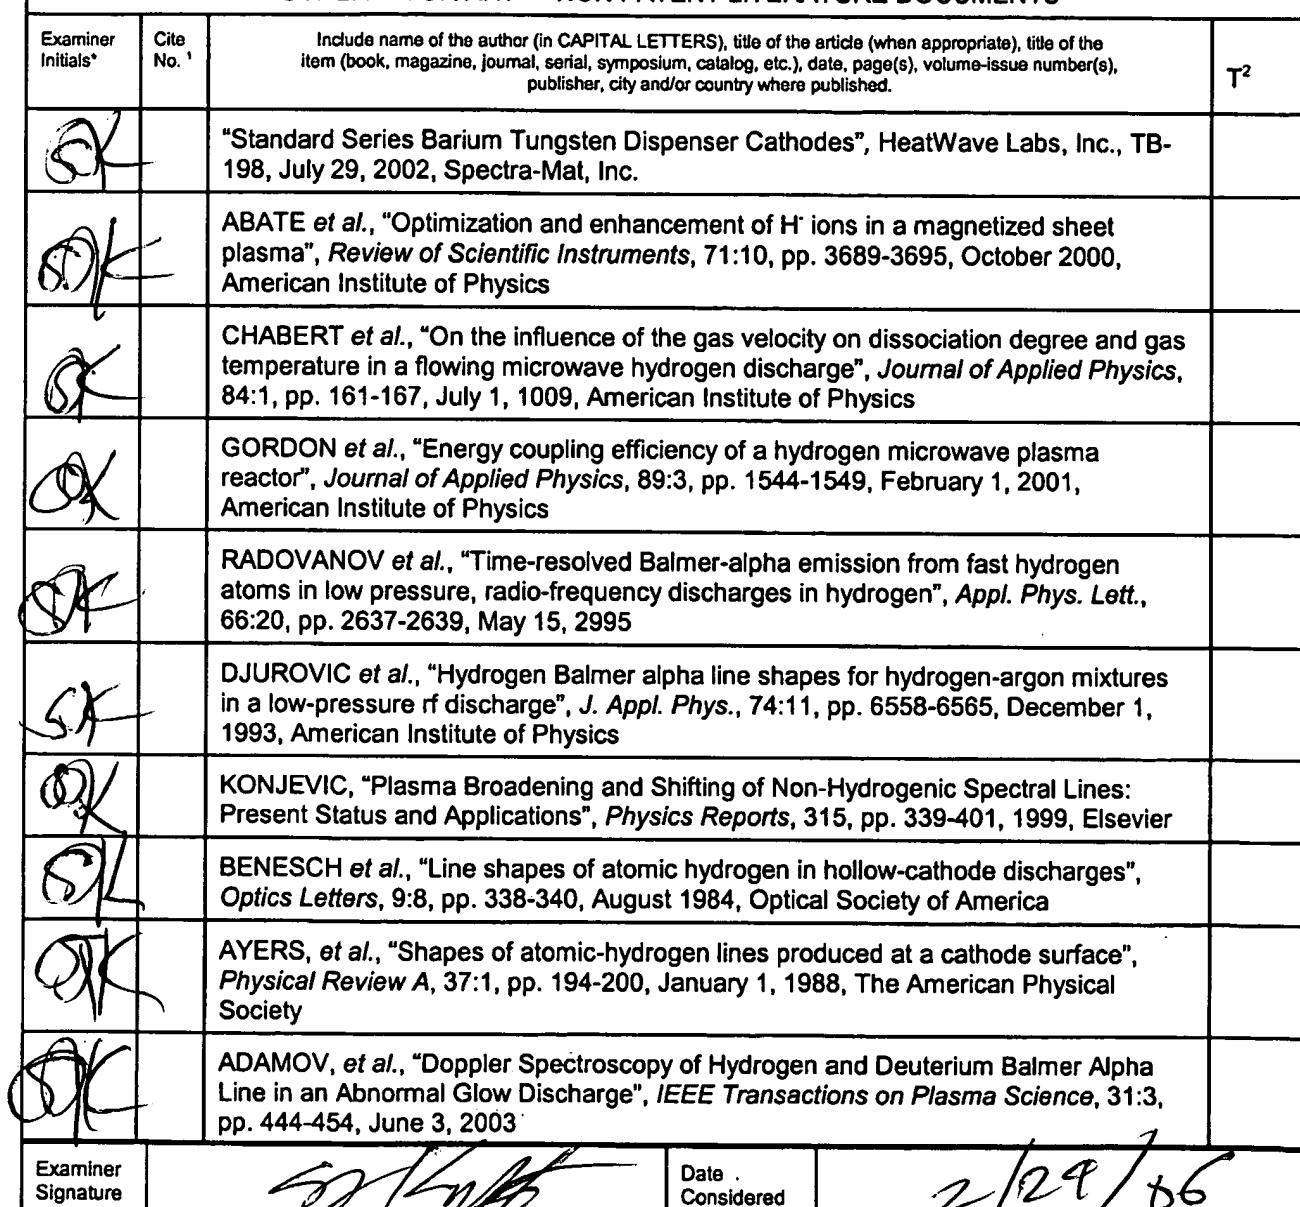 Examiner Initials* Cite No. 1 Include name of the author (in CAPITAL LETTERS), title of the article (when appropriate), title of the
item (book, magazine, journal, serial, symposium, catalog, etc.), date, page(s), volume-issue number(s),
publisher, city and/or country where published.
T2
"Standard Series Barium Tungsten Dispenser Cathodes", HeatWave Labs, Inc., TB-
198, July 29, 2002, Spectra-Mat, Inc.
ABATE et al., "Optimization and enhancement of H- ions in a magnetized sheet
plasma", Review of Scientific Instruments, 71:10, pp. 3689-3695, October 2000,
American Institute of Physics
CHABERT et al., "On the influence of the gas velocity on dissociation degree and gas
temperature in a flowing microwave hydrogen discharge", Journal of Applied Physics,
84:1, pp. 161-167, July 1, 1009, American Institute of Physics
GORDON et al., "Energy coupling efficiency of a hydrogen microwave plasma
reactor", Journal of Applied Physics, 89:3, pp. 1544-1549, February 1, 2001,
American Institute of Physics
RADOVANOV et al., "Time-resolved Balmer-alpha emission from fast hydrogen
atoms in low pressure, radio-frequency discharges in hydrogen", Appl. Phys. Lett.,
66:20, pp. 2637-2639, May 15, 2995
DJUROVIC et al., "Hydrogen Balmer alpha line shapes for hydrogen-argon mixtures
in a low-pressure rf discharge", J. Appl. Phys., 74:11, pp. 6558-6565, December 1,
1993, American Institute of Physics
KONJEVIC, "Plasma Broadening and Shifting of Non-Hydrogenic Spectral Lines:
Present Status and Applications", Physics Reports, 315, pp. 339-401, 1999, Elsevier
BENESCH et al., "Line shapes of atomic hydrogen in hollow-cathode discharges",
Optics Letters, 9:8, pp. 338-340, August 1984, Optical Society of America
AYERS, et al., "Shapes of atomic-hydrogen lines produced at a cathode surface",
Physical Review A, 37:1, pp. 194-200, January 1, 1988, The American Physical
Society
ADAMOV, et al., "Doppler Spectroscopy of Hydrogen and Deuterium Balmer Alpha
Line in an Abnormal Glow Discharge", IEEE Transactions on Plasma Science, 31:3,
pp. 444-454, June 3, 2003
Examiner
Signature
Date
Considered